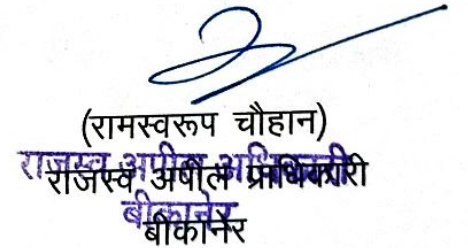 (रामस्वरूप चौहान)
राजस्व अपील अधिकारी
राजस्व अपील प्राधिकारी
बीकानेर
बीकानेर